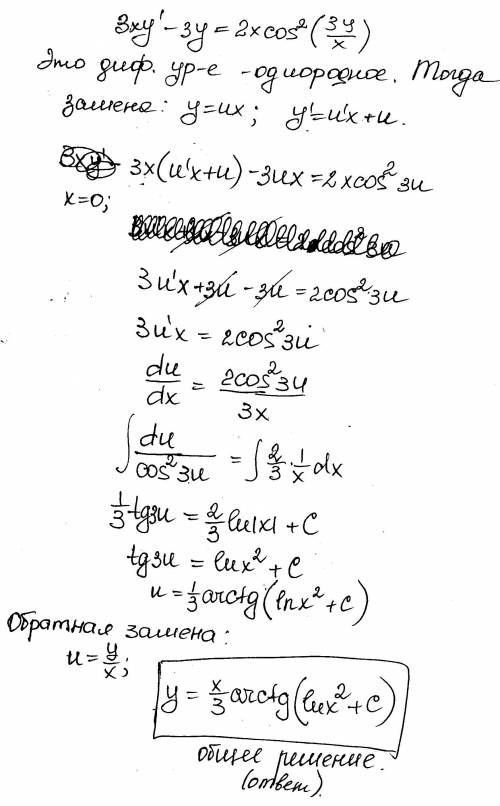 3xy' - 3y = 2x cos² (3y/x)
Это диф. ур-е - однородное. Тогда
замена: y = ux; y' = u'x + u.
3x(u'x + u) - 3ux = 2x cos² 3u
x = 0;
3u'x + 3u - 3u = 2cos² 3u
3u'x = 2cos² 3u
du/dx = 2cos² 3u / 3x
∫ du/cos² 3u = ∫ 2/3 · 1/x dx
1/3 tg3u = 2/3 ln|x| + C
tg3u = lnx² + C
u = 1/3 arctg(lnx² + C)
Обратная замена:
u = y/x;
y = x/3 arctg(lnx² + C)
общее решение.
(ответ).